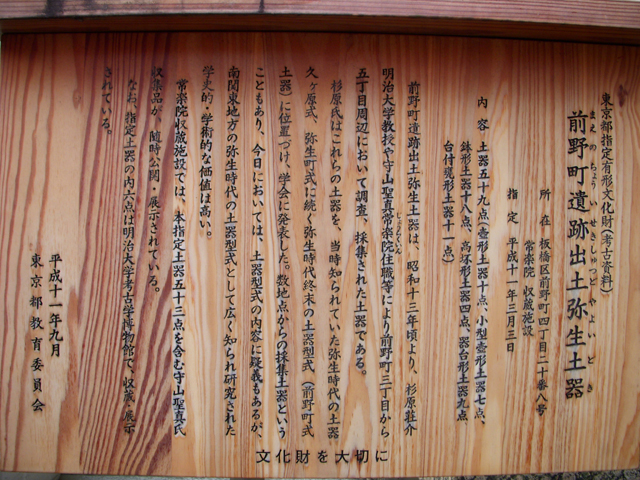 東京都指定有形文化財(考古資料)
まえのちょういせきしゅつどやよいどき
前野町遺跡出土弥生土器
所在 板橋区前野町四丁目二十番八号
常楽院 収蔵施設
指定 平成十一年三月三日
内容 土器五十九点(壺形土器十点、小型壺形土器七点、
鉢形土器十八点、高坏形土器四点、器台形土器九点
台付甕形土器十一点)
前野町遺跡出土弥生土器は、昭和十三年頃より、杉原荘介
じょうらくいん
明治大学教授や守山聖真常楽院住職等により前野町三丁目から
五丁目周辺において調査、採集された土器である。
杉原氏はこれらの土器を、当時知られていた弥生時代の土器
久ヶ原式、弥生町式に続く弥生時代終末の土器型式(前野町式
土器)に位置づけ、学会に発表した。数地点からの採集土器という
こともあり、今日においては、土器型式の内容に疑義もあるが、
南関東地方の弥生時代の土器型式として広く知られ研究された
学史的・学術的な価値は高い。
常楽院収蔵施設では、本指定土器五十三点を含む守山聖真氏
収集品が、随時公開・展示されている。
なお、指定土器の内六点は明治大学考古学博物館で、収蔵・展示
されている。
平成十一年九月
東京都教育委員会
文化財を大切に